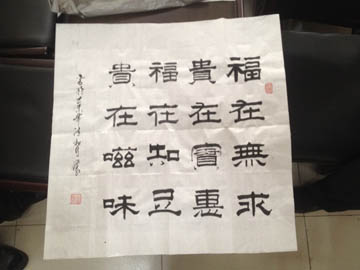 福在無求
貴在實惠
福在知足
貴在嗞味